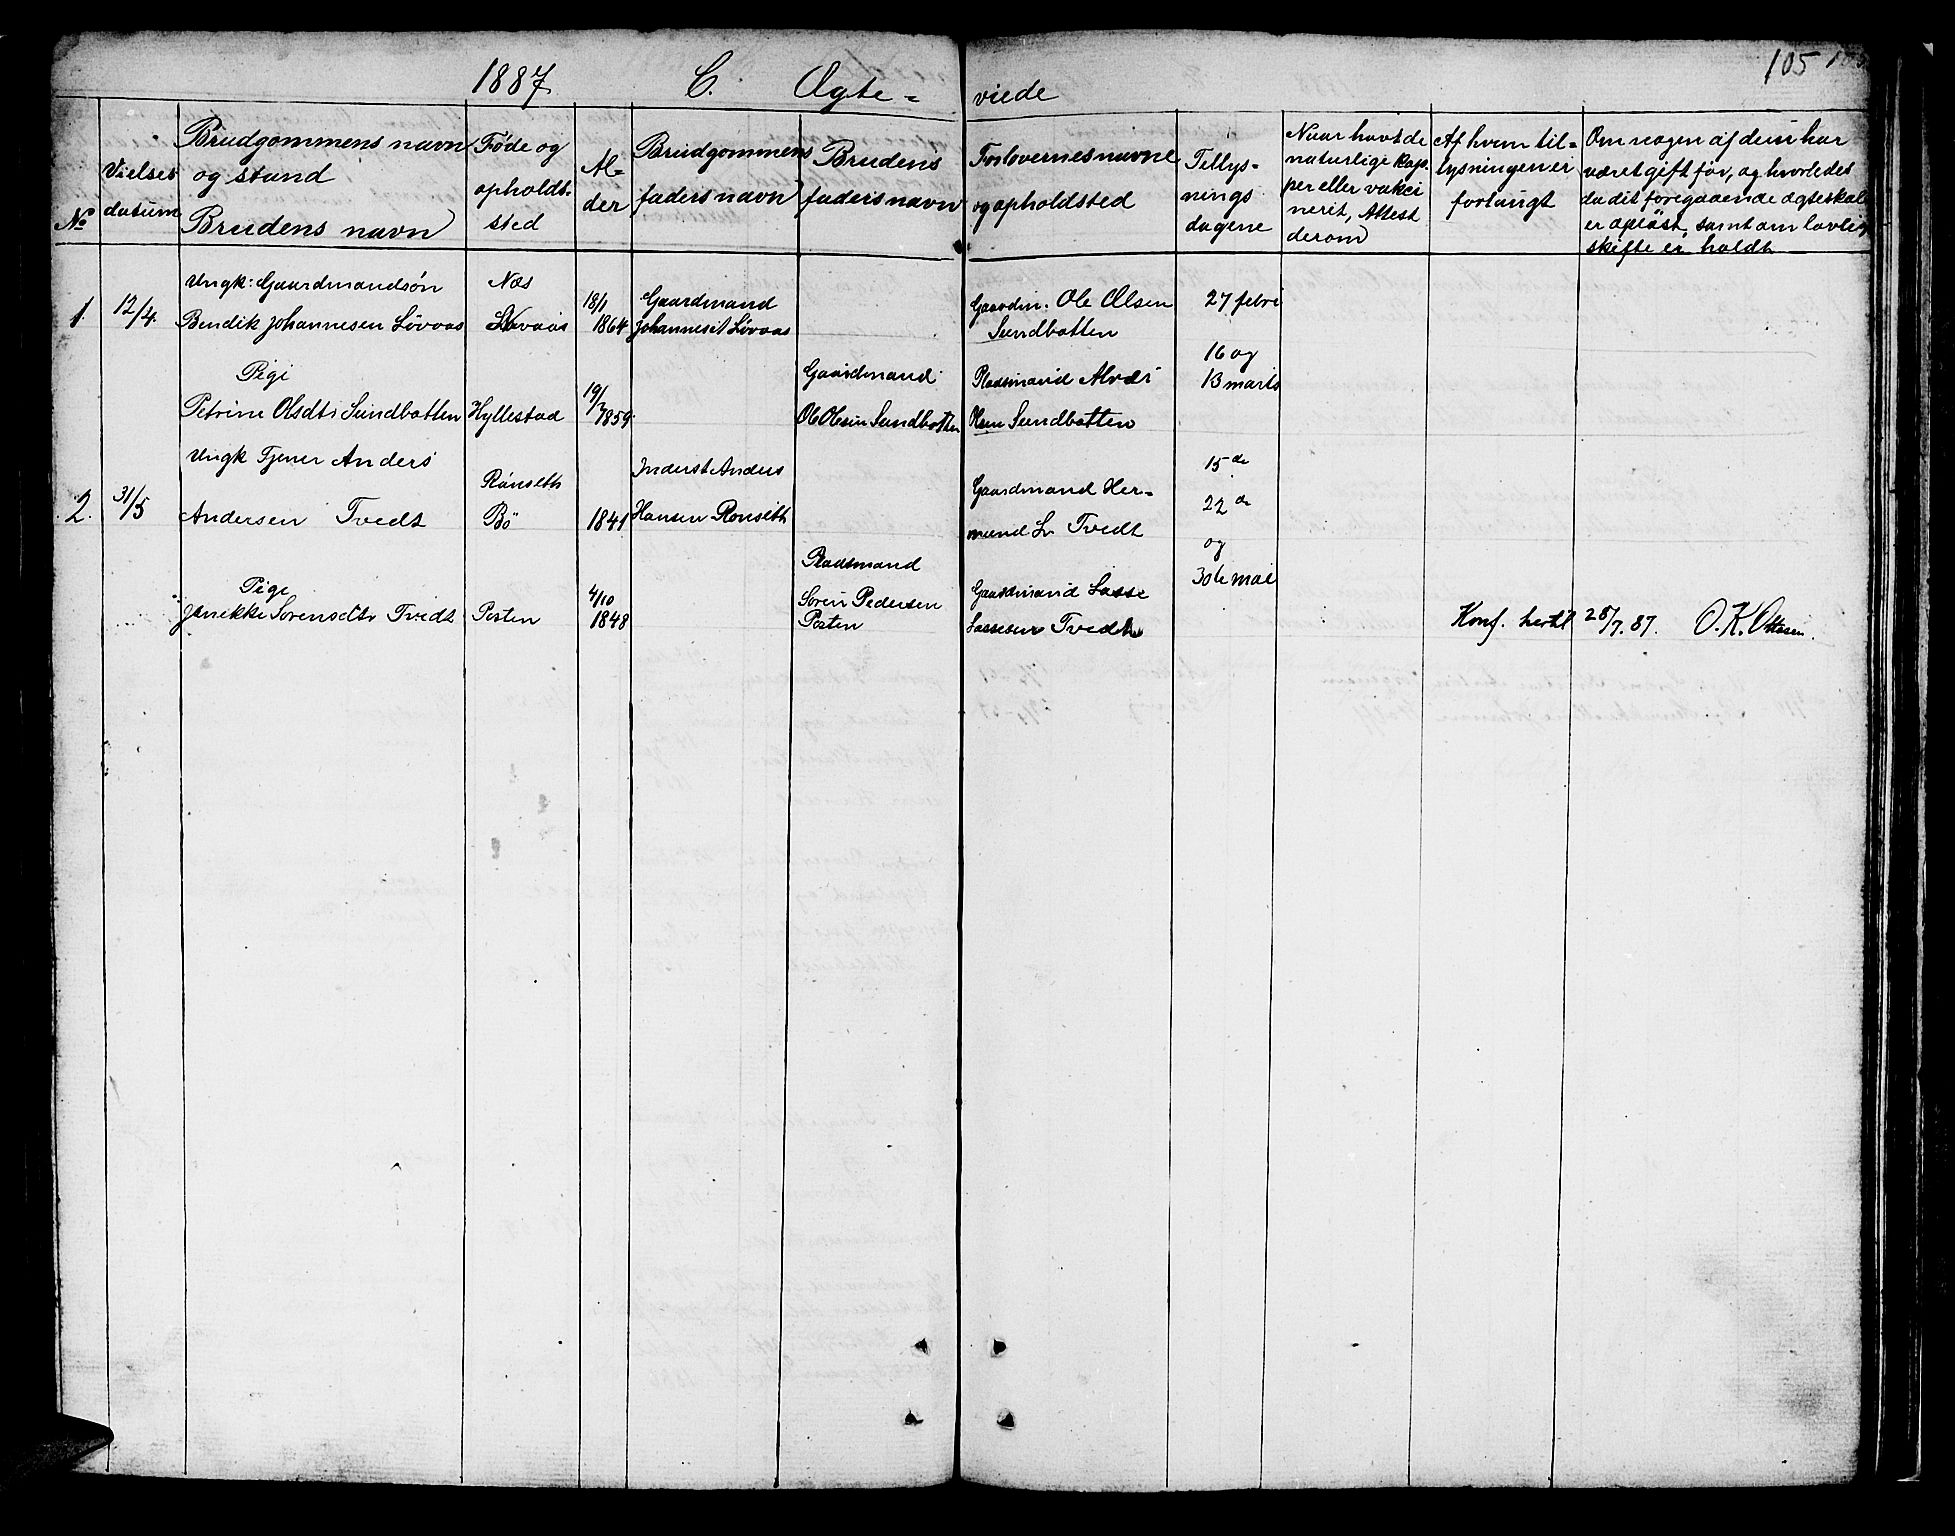 1887 C. Ægte= viede 105
No
Vielses datum
Brudgommens navn og stand Brudens navn
Føde og opholdt. sted
Al= der
Brudgommens faders navn
Brudens faders navn
Forlovernes navne og opholdsted
Tillys= nings dagene
Naar havt de naturlige kop per eller vakci nerit, Attest derom
Af hvem til= lysningen er forlangt
Om nogen af dem har været gift før, og hvorledes da det foregaaende ægteskab er opløst, samt om lovlig skifte er holdt
1 12/4. Ungk: Gaardmandsøn
Bendik Johannesen Løvaas
Næs
Løvaas
18/1 1864
Gaardmand
Johannes Løvaas
Gaardm. Ole Olsen
Sundbotten
27 febri
16 og
13 marts
Pige
Petrine Olsdtr Sundbotten
Hyllestad
19/7 1859.
Gaardmand
Ole Olesen Sundbotten
Pladsmand Alvær
Olsen Sundbotten
2. 31/5 Ungk Tjener Anders
Andersen Tvedt
Rønseth
Bø
1841
Inderst Anders
Hansen Rønseth
Gaardmand Her=
mund L. Tvedt
15 de
22 de
og
30te mai
Pige
Janikke Sørensdtr Tvedt
Posten
4/10 1848
Pladsmand
Søren Pedersen
Posten
Gaardmand Lasse
Lassesen Tvedt
Konf. hertil 28/7. 87. O. K. Ottesen.